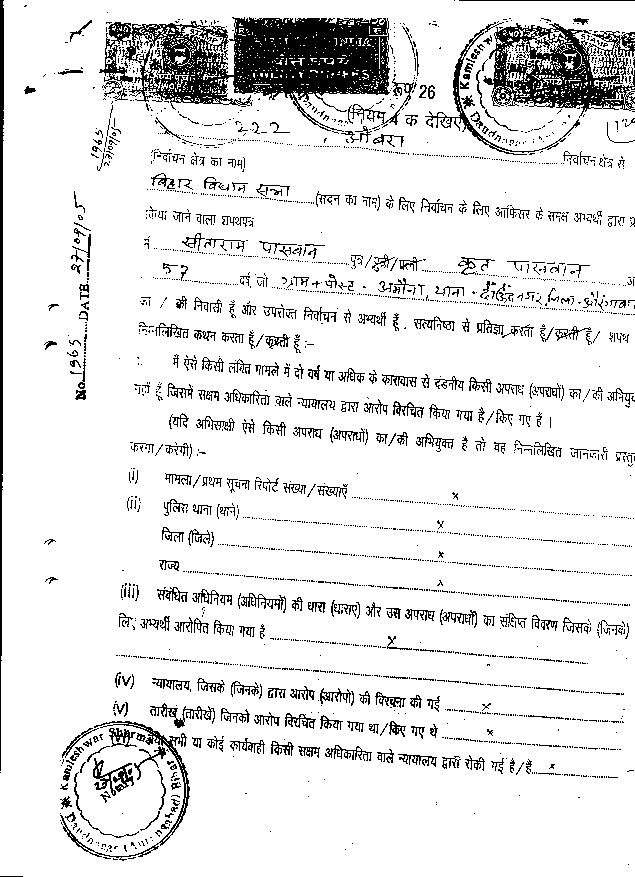 रूप 26
(नियम 4 क देखिए)
222 , ओबरा
(निर्वाचन क्षेत्र का नाम) निर्वाचन क्षेत्र से
बिहार विधान सभा (सदन का नाम) के लिए निर्वाचन के लिए आफिसर के समक्ष अभ्यर्थी द्वारा
किया जाने वाला शपथपत्र
मैं सीताराम पासवान पुत्र/पुत्री/पत्नी पासवान
57 वर्ष, जो ग्राम + पोस्ट - अमौना, थाना - जिला -
का / की निवासी हूँ और उपरोक्त निर्वाचन से अभ्यर्थी हूँ , सत्यनिष्ठा से प्रतिज्ञा करता हूँ/करती हूँ/ शपथ
निम्नलिखित कथन करता हूँ/करती हूँ :-
मैं ऐसे किसी लंबित मामले में दो वर्ष या अधिक के कारावास से दंडनीय किसी अपराध (अपराधों) का/की
नहीं हूँ जिसमें सक्षम अधिकारिता वाले न्यायालय द्वारा आरोप विरचित किया गया है/किए गए हैं ।
(यदि अभिसाक्षी ऐसे किसी अपराध (अपराधों) का/की अभियुक्त है तो वह निम्नलिखित जानकारी
करेगा/करेगी) :-
(i) मामला/प्रथम सूचना रिपोर्ट संख्या/संख्याएँ x
(ii) पुलिस थाना (थाने) x
जिला (जिले) x
राज्य x
(iii) संबंधित अधिनियम (अधिनियमों) की धारा (धाराएं) और उस अपराध (अपराधों) का संक्षिप्त विवरण जिसके (जिनके)
लिए अभ्यर्थी आरोपित किया गया है x
(iv) न्यायालय, जिसके (जिनके) द्वारा आरोप (आरोपों) की विरचना की गई x
(v) तारीख (तारीखें) जिनको आरोप विरचित किया गया था/किए गए थे x
सभी या कोई कार्यवाही किसी सक्षम अधिकारिता वाले न्यायालय द्वारा रोकी गई है/हैं x
No 1965 DATE 27/09/05
1965
27/09/05
Kamleshwar Sharma
Notary
Daudnagar (Aurangabad) Bihar